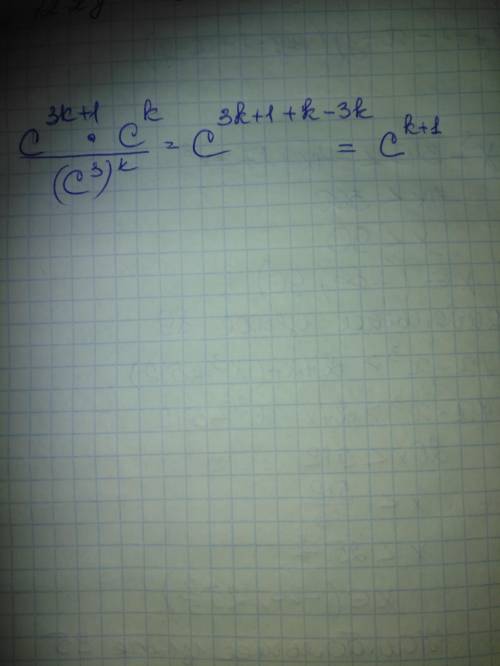 $\frac{C^{3k+1} \cdot C^{k}}{(C^{3})^{k}} = C^{3k+1+k-3k} = C^{k+1}$